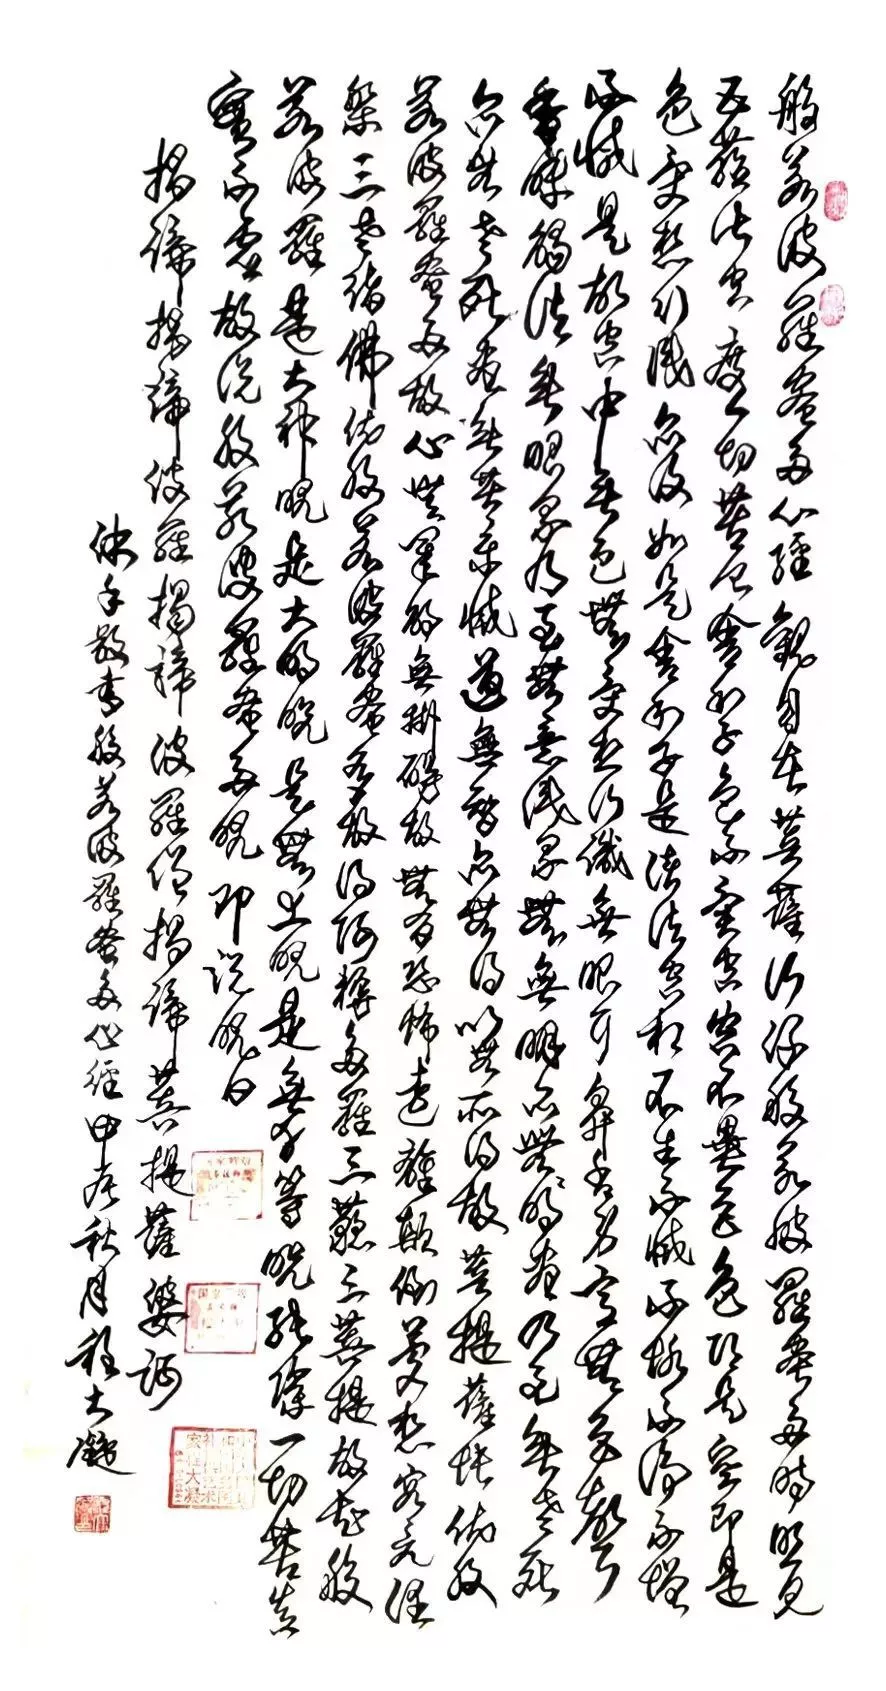 般若波羅蜜多心經觀自在菩薩行深般若波羅蜜多時照見
五蘊皆空度一切苦厄舍利子色不異空空不異色色即是空空即是
色受想行識亦復如是舍利子是諸法空相不生不滅不垢不淨不增
不減是故空中無色無受想行識無眼耳鼻舌身意無色聲
香味觸法無眼界乃至無意識界無無明亦無無明盡乃至無老死
亦無老死盡無苦集滅道無智亦無得以無所得故菩提薩埵依般
若波羅蜜多故心無罣礙無掛礙故無有恐怖遠離顛倒夢想究竟涅
槃三世諸佛依般若波羅蜜多故得阿耨多羅三藐三菩提故知般
若波羅是大神咒是大明咒是無上咒是無等等咒能除一切苦真
實不虛故說般若波羅蜜多咒即說咒曰
揭諦揭諦波羅揭諦波羅僧揭諦菩提薩婆訶
佛子敬書般若波羅蜜多心經甲辰秋月程大凝